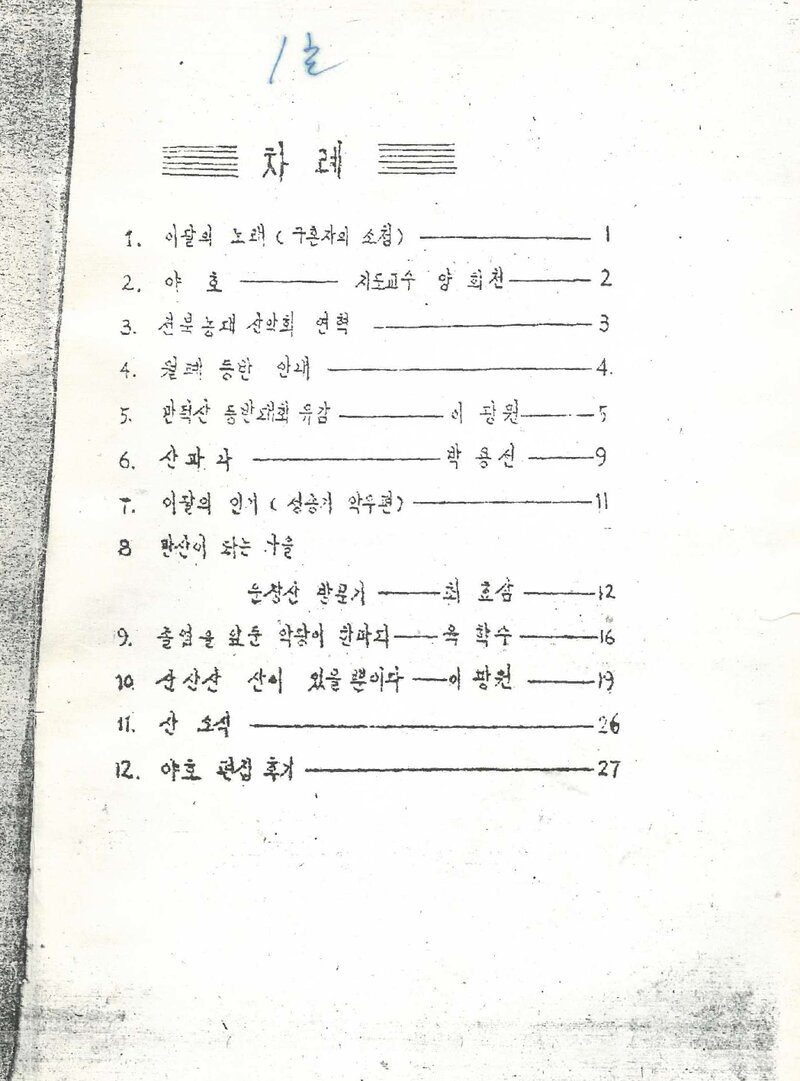 1호
차 례
1. 이달의 노래 ( 구혼자의 소청 ) 1
2. 야 호 지도교수 양 희천 2
3. 전북농대 산악회 연혁 3
4. 월례 등반 안내 4.
5. 만덕산 등반대회 유감 이 광원 5
6. 산과 나 박 용신 9
7. 이달의 인기 ( 성공기 악우편 ) 11
8 만산이 되는 가을
운장산 방문기 최 효삼 12
9. 졸업을 앞둔 악당이 한마디 옥 학수 16
10. 산이 있을 뿐이다 이 광원 19
11. 산 소식 26
12. 야호 편집 후기 27